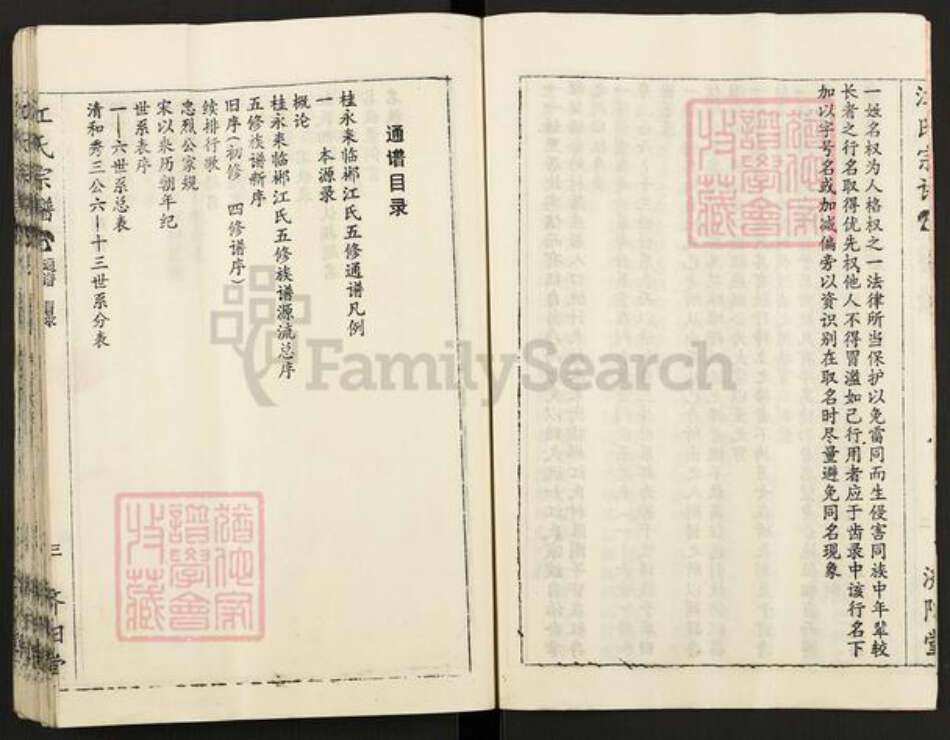 一姓名权为人格权之一法律所当保护以免雷同而生侵害同族中年辈较
长者之行名取得优先权他人不得冒滥如己行用者应于齿录中该行名下
加以字号名或加减偏旁以资识别在取名时尽量避免同名现象
通谱目录
桂永耒临郴江氏五修通谱凡例
一 本源录
概论
桂永耒临郴江氏五修族谱源流总序
五修族谱新序
旧序(初修 四修谱序)
续排行歌
忠烈公家规
宋以来历朝年纪
世系表序
一—六世系总表
清和秀三公六—十三世系分表
江氏宗谱
通谱 目录
三
济阳堂
FamilySearch
猶他家
譜學會
收藏
猶他家
譜學會
收藏
江氏宗谱
济阳堂